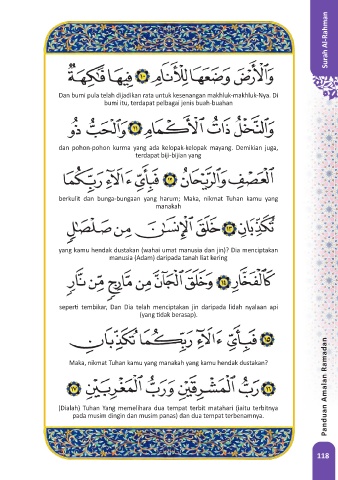 Surah Al-Rahman
وَٱلْأَرْضَ وَضَعَهَا لِلْأَنَامِ ١٠ فِيهَا فَـٰكِهَةٌ
Dan bumi pula telah dijadikan rata untuk kesenangan makhluk-makhluk-Nya. Di
bumi itu, terdapat pelbagai jenis buah-buahan
وَٱلنَّخْلُ ذَاتُ ٱلْأَكْمَامِ ١١ وَٱلْحَبُّ ذُو
dan pohon-pohon kurma yang ada kelopak-kelopak mayang. Demikian juga,
terdapat biji-bijian yang
ٱلْعَصْفِ وَٱلرَّيْحَانُ ١٢ فَبِأَيِّ ءَالَآءِ رَبِّكُمَا
berkulit dan bunga-bungaan yang harum; Maka, nikmat Tuhan kamu yang
manakah
تُكَذِّبَانِ ١٣ خَلَقَ ٱلْإِنسَـٰنَ مِن صَلْصَـٰلٍ
yang kamu hendak dustakan (wahai umat manusia dan jin)? Dia menciptakan
manusia (Adam) daripada tanah liat kering
كَٱلْفَخَّارِ ١٤ وَخَلَقَ ٱلْجَآنَّ مِن مَّارِجٍ مِّن نَّارٍ
seperti tembikar, Dan Dia telah menciptakan jin daripada lidah nyalaan api
(yang tidak berasap).
١٥ فَبِأَيِّ ءَالَآءِ رَبِّكُمَا تُكَذِّبَانِ
Maka, nikmat Tuhan kamu yang manakah yang kamu hendak dustakan?
١٦ رَبُّ ٱلْمَشْرِقَيْنِ وَرَبُّ ٱلْمَغْرِبَيْنِ ١٧
(Dialah) Tuhan Yang memelihara dua tempat terbit matahari (iaitu terbitnya
pada musim dingin dan musim panas) dan dua tempat terbenamnya.
Panduan Amalan Ramadan
118